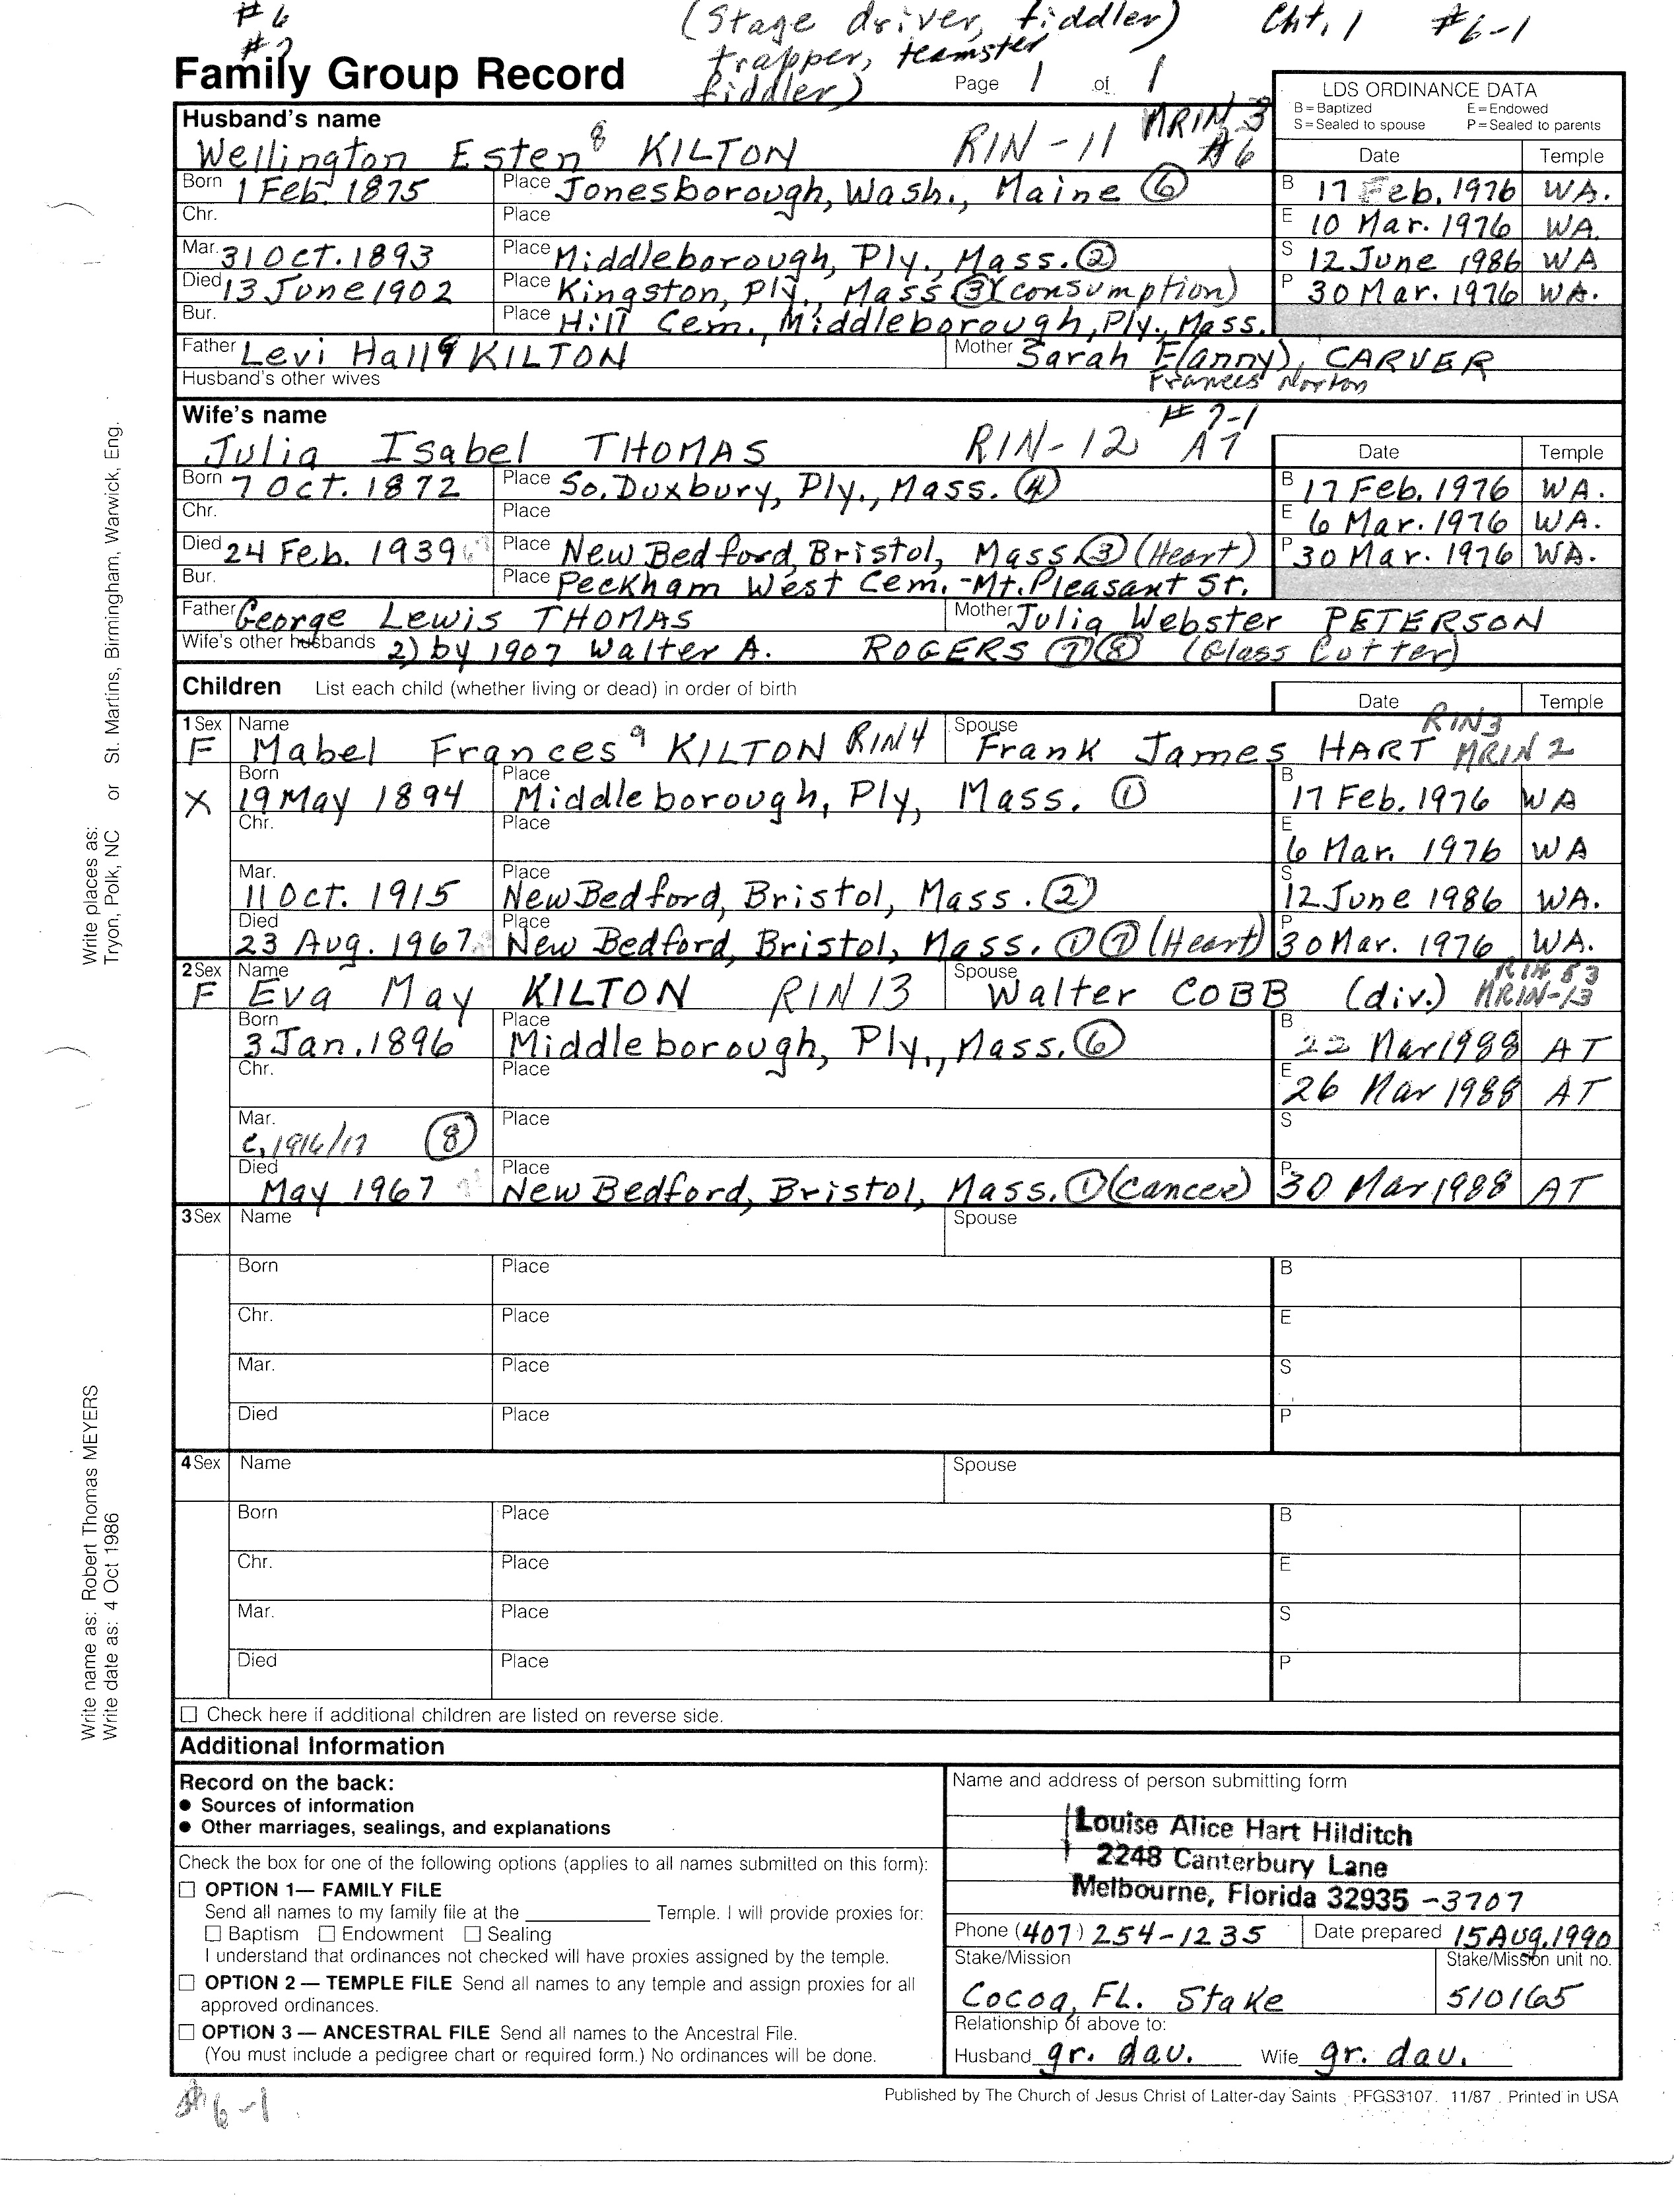 #6
(Stage driver, fiddler) Cht. 1 #6-1
#7
trapper, teamster
Family Group Record
fiddler) Page 1 of 1
LDS ORDINANCE DATA
B=Baptized E=Endowed
S=Sealed to spouse P=Sealed to parents
Husband's name
Wellington Esten 8 KILTON RIN-11 MRIN 3 A6
Date Temple
Born 1 Feb. 1875 Place Jonesborough, Wash., Maine (6) B 17 Feb. 1976 WA.
Chr. Place E 10 Mar. 1976 WA.
Mar. 31 OCT. 1893 Place Middleborough, Ply., Mass. (2) S 12 June 1986 WA
Died 13 June 1902 Place Kingston, Ply., Mass (3) (consumption) P 30 Mar. 1976 WA.
Bur. Place Hill Cem., Middleborough, Ply., Mass.
Father Levi Hall 9 KILTON Mother Sarah F(anny), CARVER
Husband's other wives Frances Norton
Wife's name #7-1
Julia Isabel THOMAS RIN-12 A7 Date Temple
Born 7 Oct. 1872 Place So. Duxbury, Ply., Mass. (4) B 17 Feb. 1976 WA.
Chr. Place E 6 Mar. 1976 WA.
Died 24 Feb. 1939 Place New Bedford, Bristol, Mass (3) (Heart) P 30 Mar. 1976 WA.
Bur. Place Peckham West Cem.-Mt. Pleasant St.
Father George Lewis THOMAS Mother Julia Webster PETERSON
Wife's other husbands 2) by 1907 Walter A. ROGERS (7)(8) (Glass Cutter)
Children List each child (whether living or dead) in order of birth Date Temple
1 Sex Name Spouse RIN3
F Mabel Frances 9 KILTON RIN4 Frank James HART MRIN 2
X Born 19 May 1894 Place Middleborough, Ply, Mass. (1) B 17 Feb. 1976 WA
Chr. Place E 6 Mar. 1976 WA
Mar. 11 Oct. 1915 Place New Bedford, Bristol, Mass. (2) S 12 June 1986 WA.
Died 23 Aug. 1967 Place New Bedford, Bristol, Mass. (1)(7) (Heart) P 30 Mar. 1976 WA.
2 Sex Name Spouse RIN 53
F Eva May KILTON RIN 13 Walter COBB (div.) MRIN-13
Born 3 Jan. 1896 Place Middleborough, Ply., Mass. (6) B 22 Mar 1988 AT
Chr. Place E 26 Mar 1988 AT
Mar. c. 1916/17 (8) Place S
Died May 1967 Place New Bedford, Bristol, Mass. (1) (Cancer) P 30 Mar 1988 AT
3 Sex Name Spouse
Born Place B
Chr. Place E
Mar. Place S
Died Place P
4 Sex Name Spouse
Born Place B
Chr. Place E
Mar. Place S
Died Place P
☐ Check here if additional children are listed on reverse side.
Additional Information
Record on the back:
● Sources of information
● Other marriages, sealings, and explanations
Check the box for one of the following options (applies to all names submitted on this form):
☐ OPTION 1— FAMILY FILE
Send all names to my family file at the ________ Temple. I will provide proxies for:
☐ Baptism ☐ Endowment ☐ Sealing
I understand that ordinances not checked will have proxies assigned by the temple.
☐ OPTION 2 — TEMPLE FILE Send all names to any temple and assign proxies for all
approved ordinances.
☐ OPTION 3 — ANCESTRAL FILE Send all names to the Ancestral File.
(You must include a pedigree chart or required form.) No ordinances will be done.
Name and address of person submitting form
Louise Alice Hart Hilditch
2248 Canterbury Lane
Melbourne, Florida 32935 -3707
Phone (407) 254-1235 Date prepared 15 Aug. 1990
Stake/Mission Stake/Mission unit no.
Cocoa, FL. Stake 510165
Relationship of above to:
Husband gr. dau. Wife gr. dau.
#6-1
Published by The Church of Jesus Christ of Latter-day Saints PFGS3107. 11/87 Printed in USA
Write places as: Tryon, Polk, NC or St. Martins, Birmingham, Warwick, Eng.
Write name as: Robert Thomas MEYERS
Write date as: 4 Oct 1986